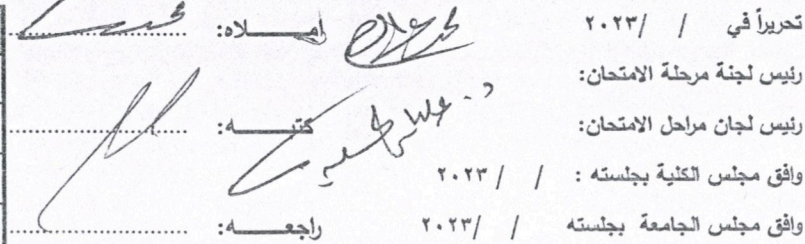 تحريراً في / / ٢٠٢٣ املاه:
رئيس لجنة مرحلة الامتحان:
رئيس لجان مراحل الامتحان: كتبه:
وافق مجلس الكلية بجلسته : / / ٢٠٢٣
وافق مجلس الجامعة بجلسته / / ٢٠٢٣ راجعه: